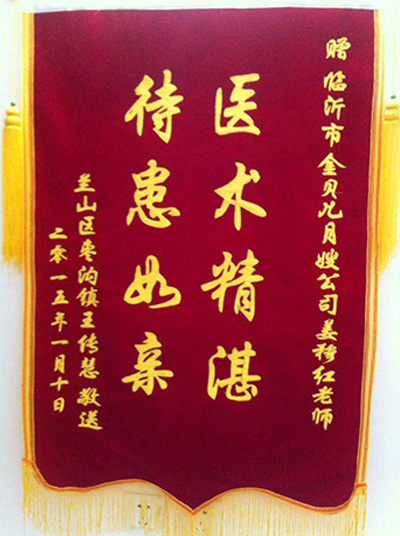 赠临沂市金贝儿月嫂公司姜穆红老师
医术精湛
待患如亲
兰山区枣沟镇王传慧敬送
二零一五年一月十日